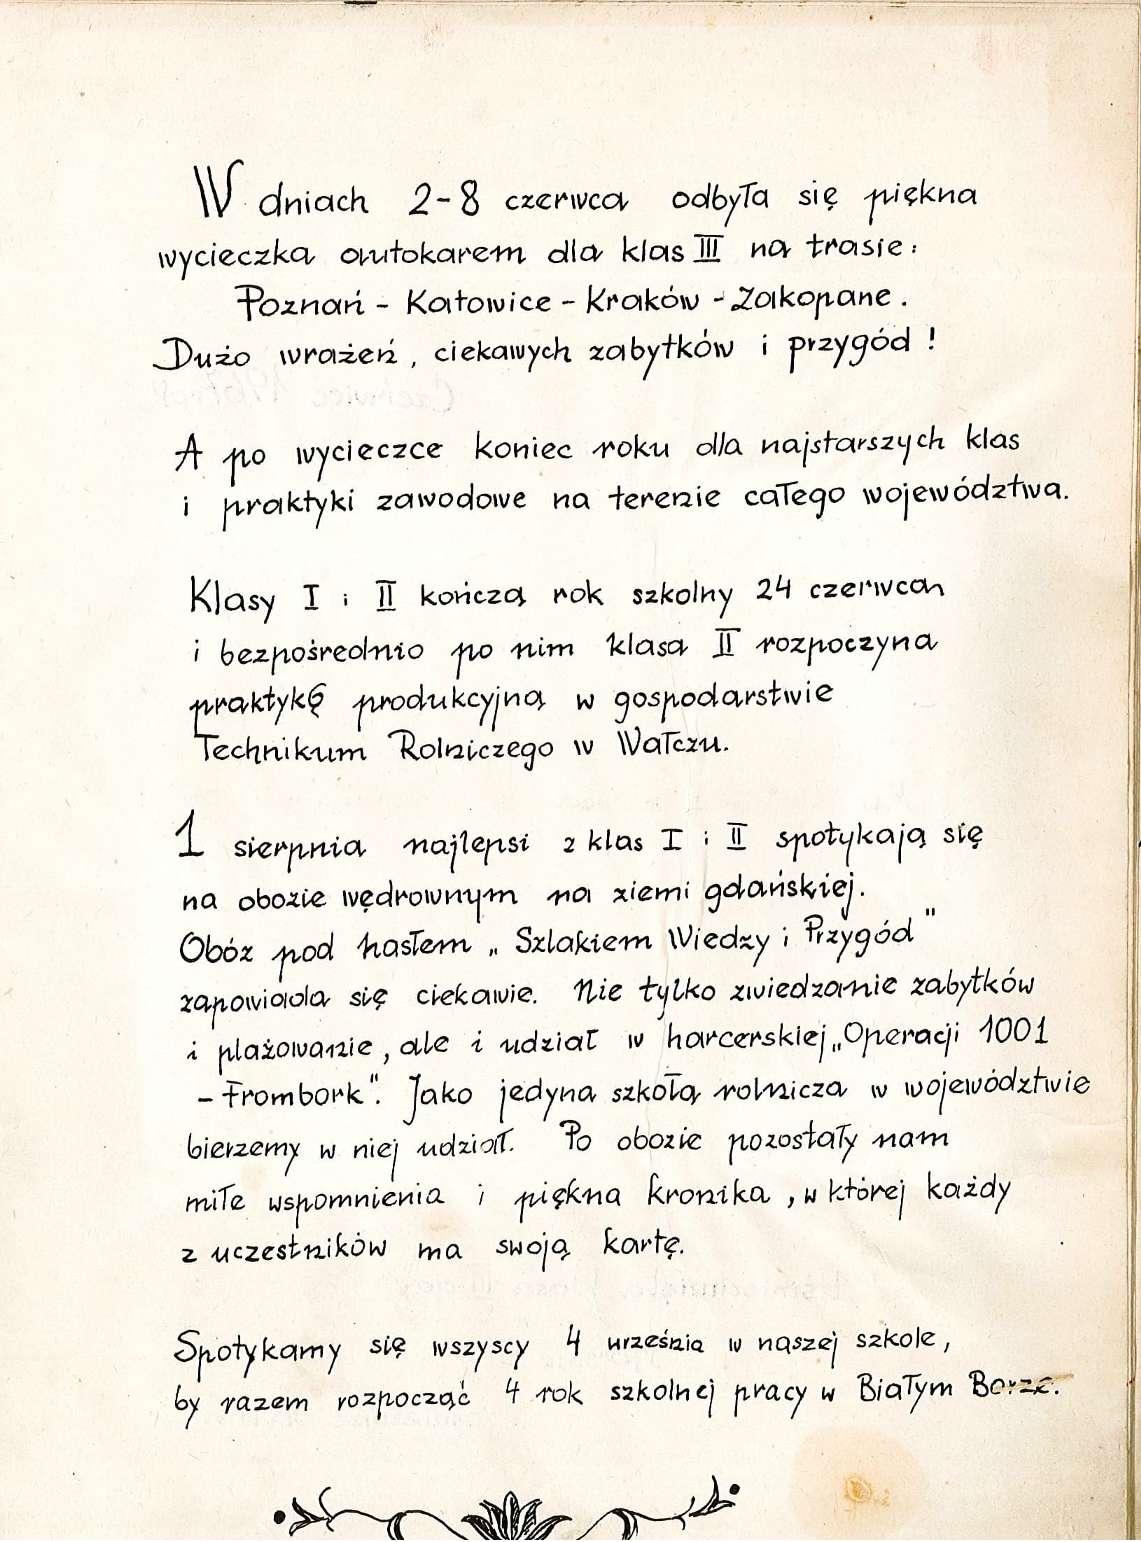 W dniach 2-8 czerwca odbyła się piękna
wycieczka autokarem dla klas III na trasie:
Poznań - Katowice - Kraków - Zakopane.
Dużo wrażeń, ciekawych zabytków i przygód!
A po wycieczce koniec roku dla najstarszych klas
i praktyki zawodowe na terenie całego województwa.
Klasy I i II kończą rok szkolny 24 czerwca
i bezpośrednio po nim klasa II rozpoczyna
praktykę produkcyjną w gospodarstwie
Technikum Rolniczego w Wałczu.
1 sierpnia najlepsi z klas I i II spotykają się
na obozie wędrownym na ziemi gdańskiej.
Obóz pod hasłem „Szlakiem Wiedzy i Przygód"
zapowiada się ciekawie. Nie tylko zwiedzanie zabytków
i plażowanie, ale i udział w harcerskiej „Operacji 1001
- Frombork". Jako jedyna szkołą rolnicza w województwie
bierzemy w niej udział. Po obozie pozostały nam
miłe wspomnienia i piękna kronika, w której każdy
z uczestników ma swoją kartę.
Spotykamy się wszyscy 4 września w naszej szkole,
by razem rozpocząć 4 rok szkolnej pracy w Białym Borze.